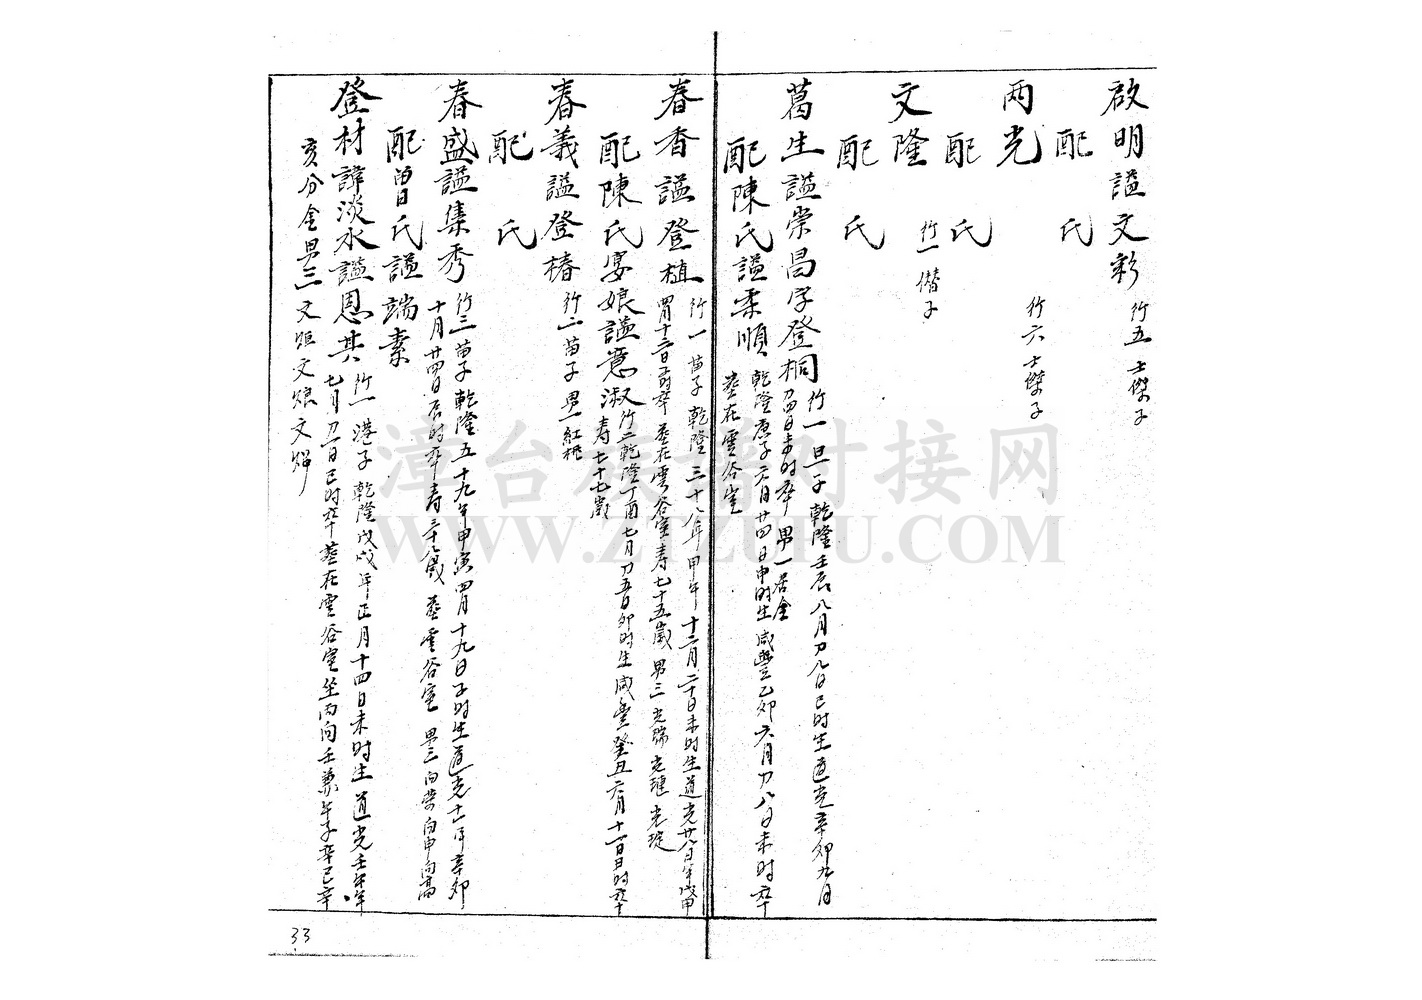 啟明謚文彩 行五 士傑子
配 氏
兩光 行六 士傑子
配 氏
文隆 行一 僭子
配 氏
葛生謚崇昌字登桐 行一 旦子 乾隆壬辰八月刀九日巳时生道光辛卯九月
刀四日未时卒 男一居金
配陳氏謚柔順 乾隆庚子六月廿四日申时生 咸豐乙卯六月刀八日未时卒
葬在雲谷室
春香謚登植 行一 苗子 乾隆三十八年甲午十二月二十日未时生道光廿八年戊申
十二日子时卒 葬在雲谷室寿七十五歲 男三 光瑞 光璉 光琔
配陳氏宴娘謚意淑 行二 乾隆丁酉七月刀五日卯时生 咸豊癸丑六月十一日时卒
寿七十七歲
春義謚登椿 行二 苗子 男一紅桃
配 氏
春盛謚集秀 行三 苗子 乾隆五十九年甲寅四月十九日子时生道光十一年辛卯
十月廿四日辰时卒寿三十八歲 葬雲谷室 男三 向荣 向申 向高
配曾氏謚端素
登材諱淡水謚恩其 行一 港子 乾隆戊戌年正月十四日未时生 道光壬午年
七月刀一日巳时卒葬在雲谷室坐丙向壬兼午子辛巳辛
亥分金男三 文炬 文烺 文焊
33
漳台族谱对接网
WWW.ZTZUPU.COM